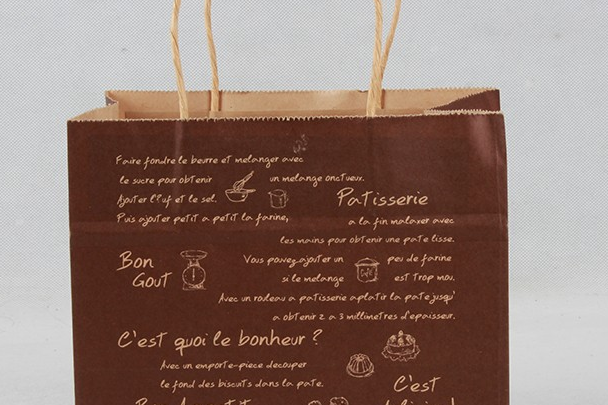 Faire fondre le beurre et melanger avec
le sucre pour obtenir un melange onctueux.
Ajouter l'?uf et le sel. Patisserie
Puis ajouter petit a petit la farine,
a la fin malaxer avec
les mains pour obtenir une pate lisse.
Bon
Gout
Vous pouvez ajouter un peu de farine
si le melange Café est trop mou.
Avec un rouleau a patisserie aplatir la pate jusqu'
a obtenir 2 a 3 millimetres d'epaisseur.
C'est quoi le bonheur ?
Avec un emporte-piece decouper
le fond des biscuits dans la pate.
C'est